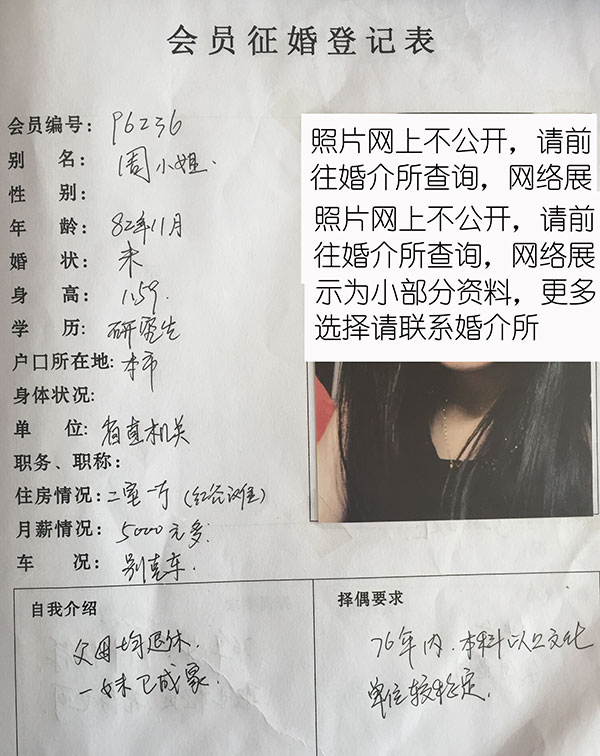 会员征婚登记表
会员编号: P6236
别 名: 周小姐.
性 别:
年 龄: 82年11月
婚 状: 未
身 高: 1.59.
学 历: 研究生
户口所在地: 本市
身体状况:
单 位: 省直机关
职务、职称:
住房情况: 二室一厅 (红谷滩)
月薪情况: 5000元多.
车 况: 别克车.
照片网上不公开，请前
往婚介所查询，网络展
照片网上不公开，请前
往婚介所查询，网络展
示为小部分资料，更多
选择请联系婚介所
自我介绍
父母均退休.
一妹已成家.
择偶要求
76年内.本科以上文化
单位较稳定.